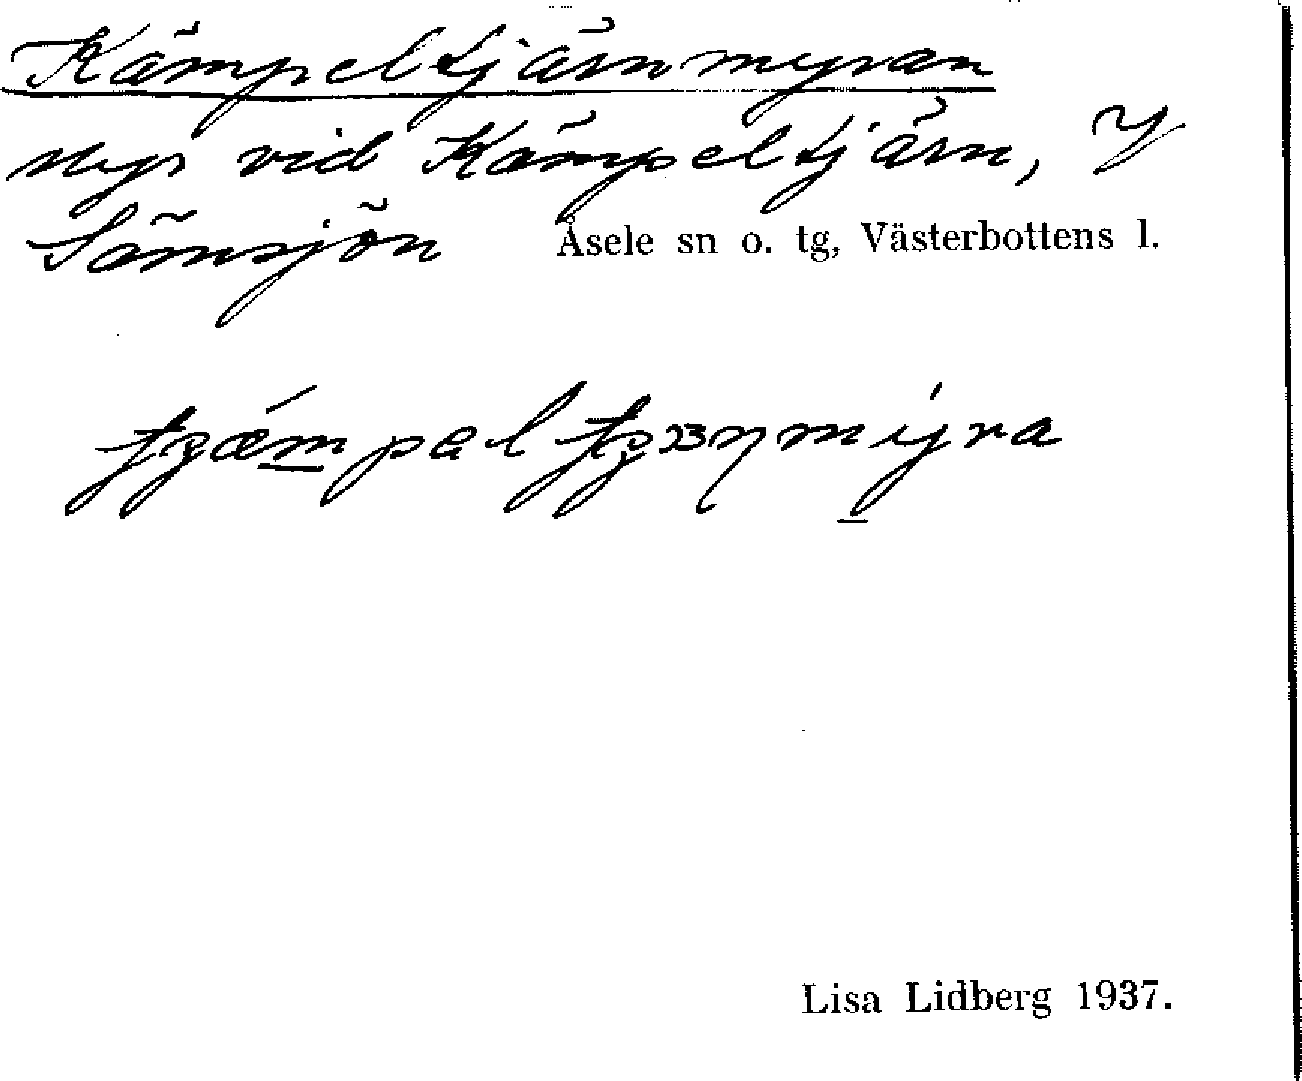 Kämpeltjärnmyran
Myr vid Kämpeltjärn, V
Sömsjön Åsele sn o. tg, Västerbottens l.
Lisa Lidberg 1937.